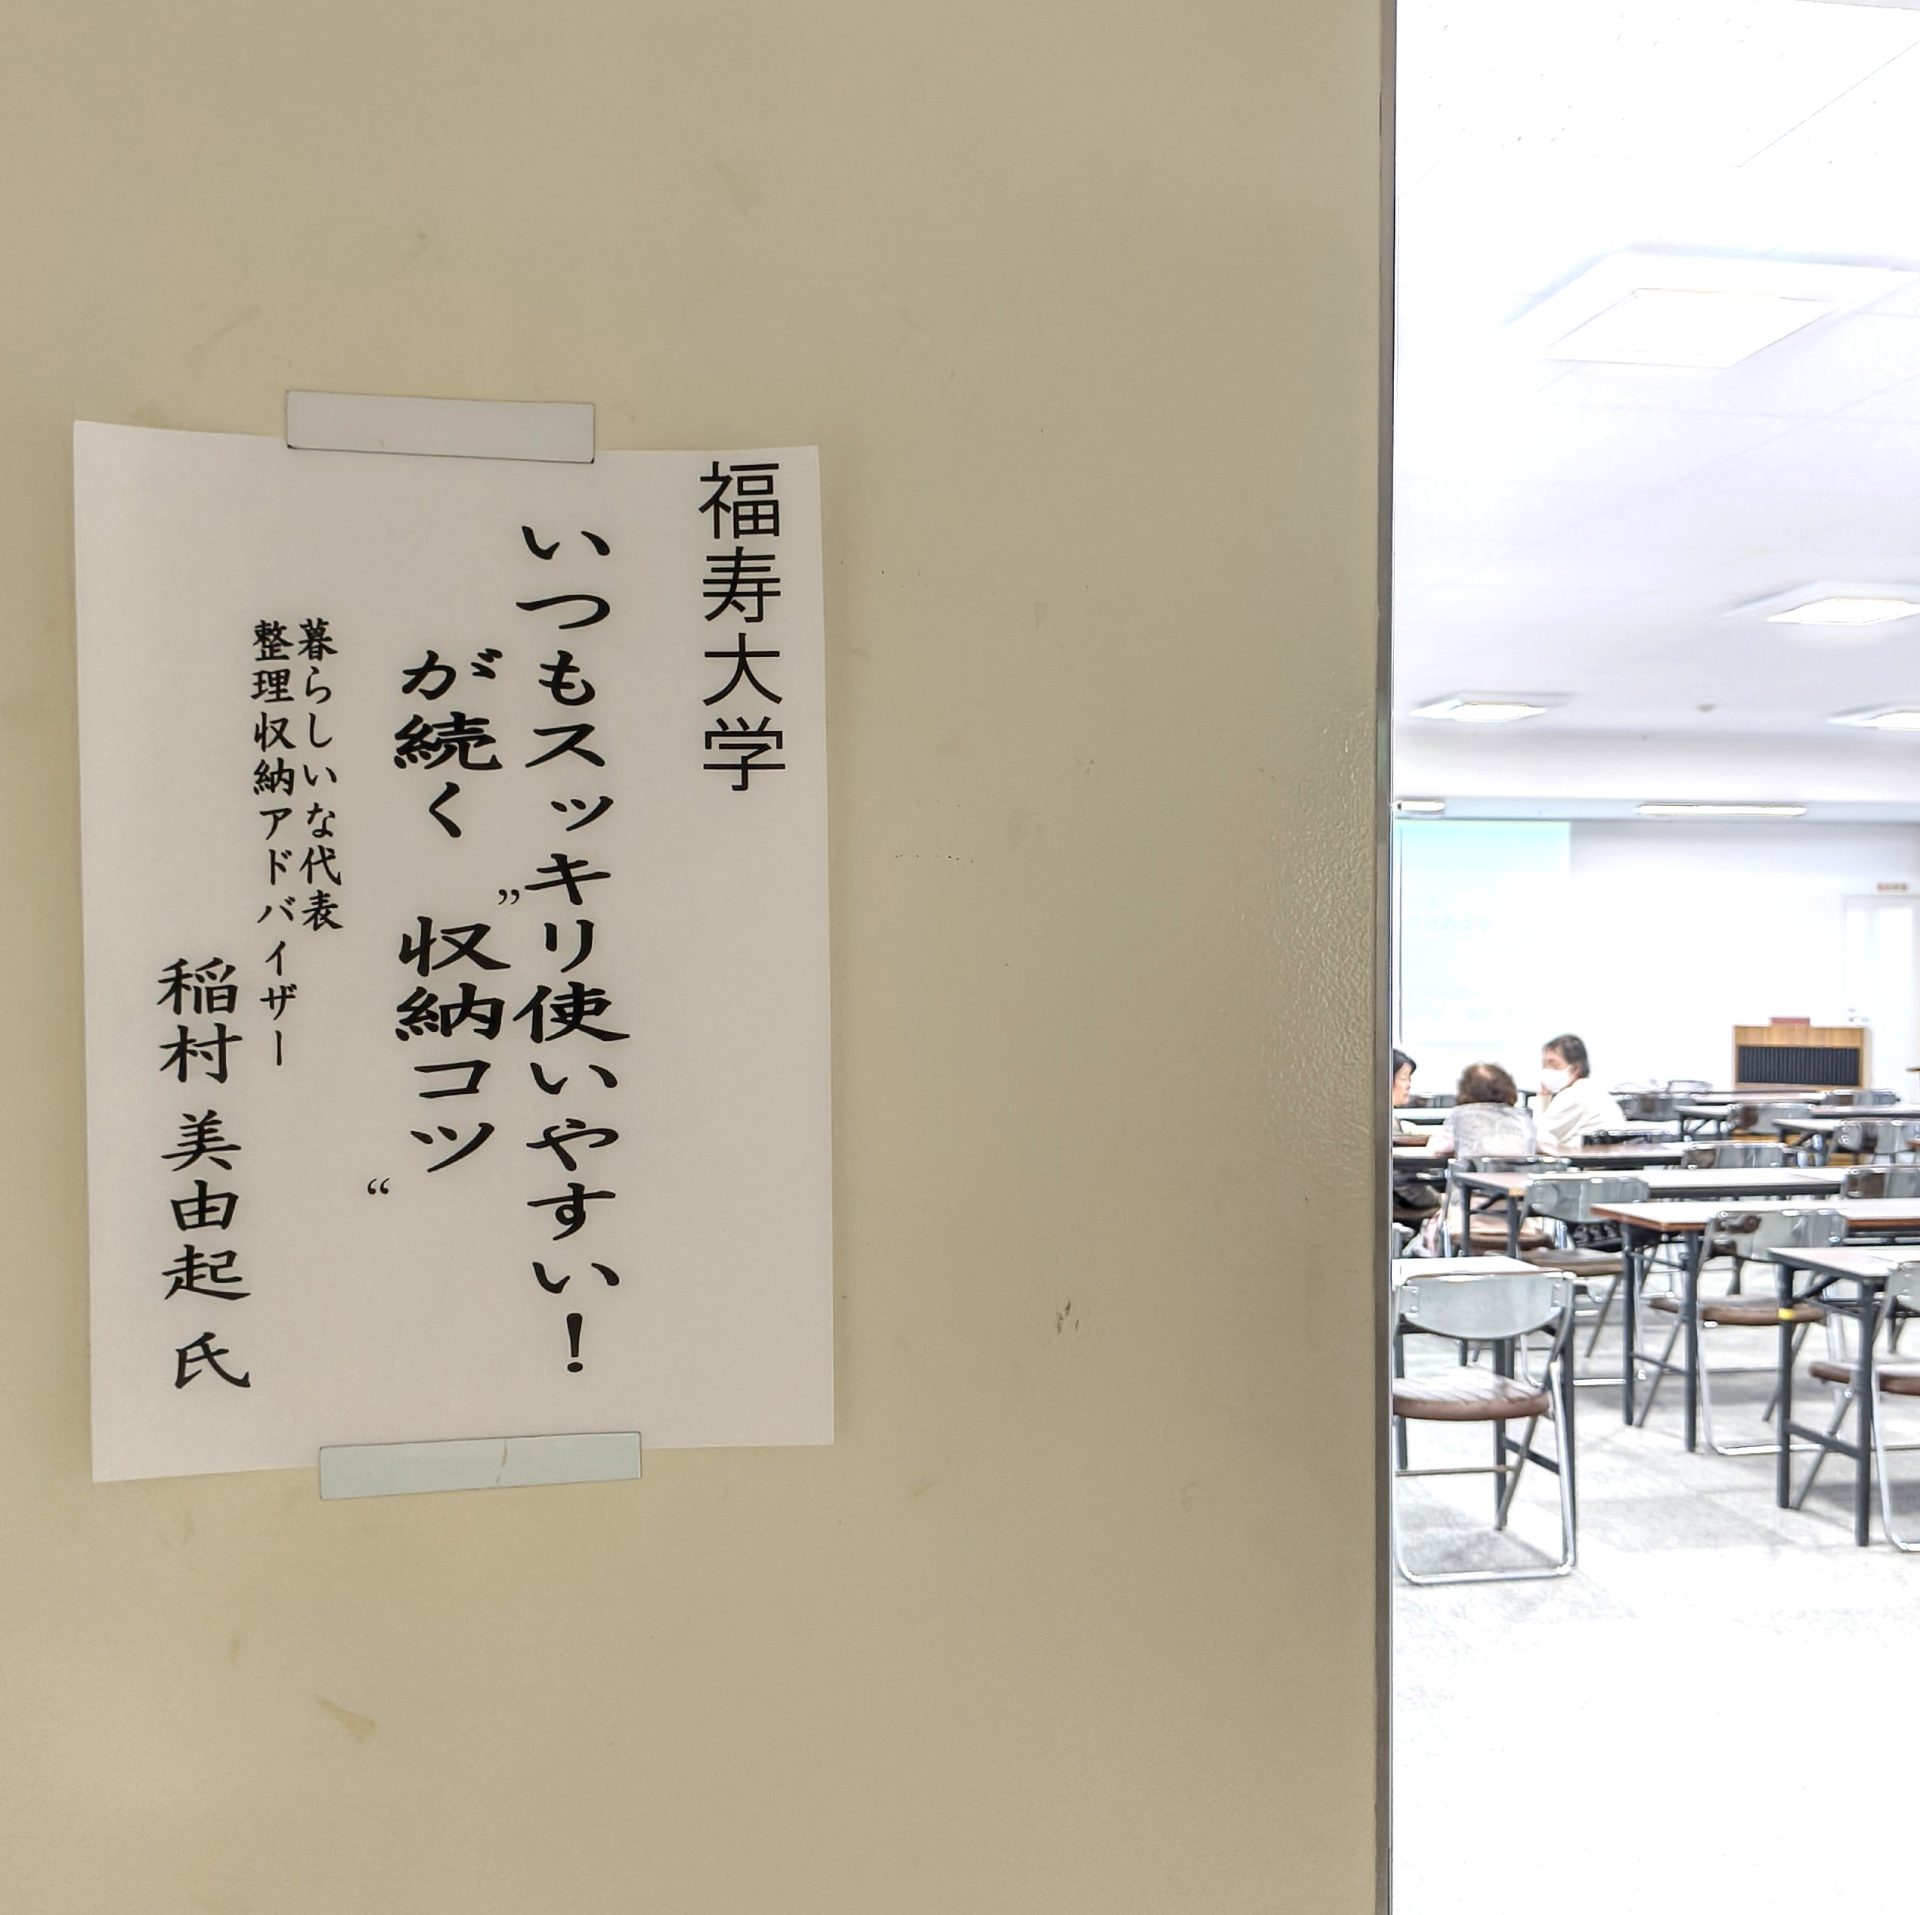 福寿大学
いつもスッキリ使いやすい！
が続く”収納コツ“
暮らしいな代表
整理収納アドバイザー
稲村 美由起 氏